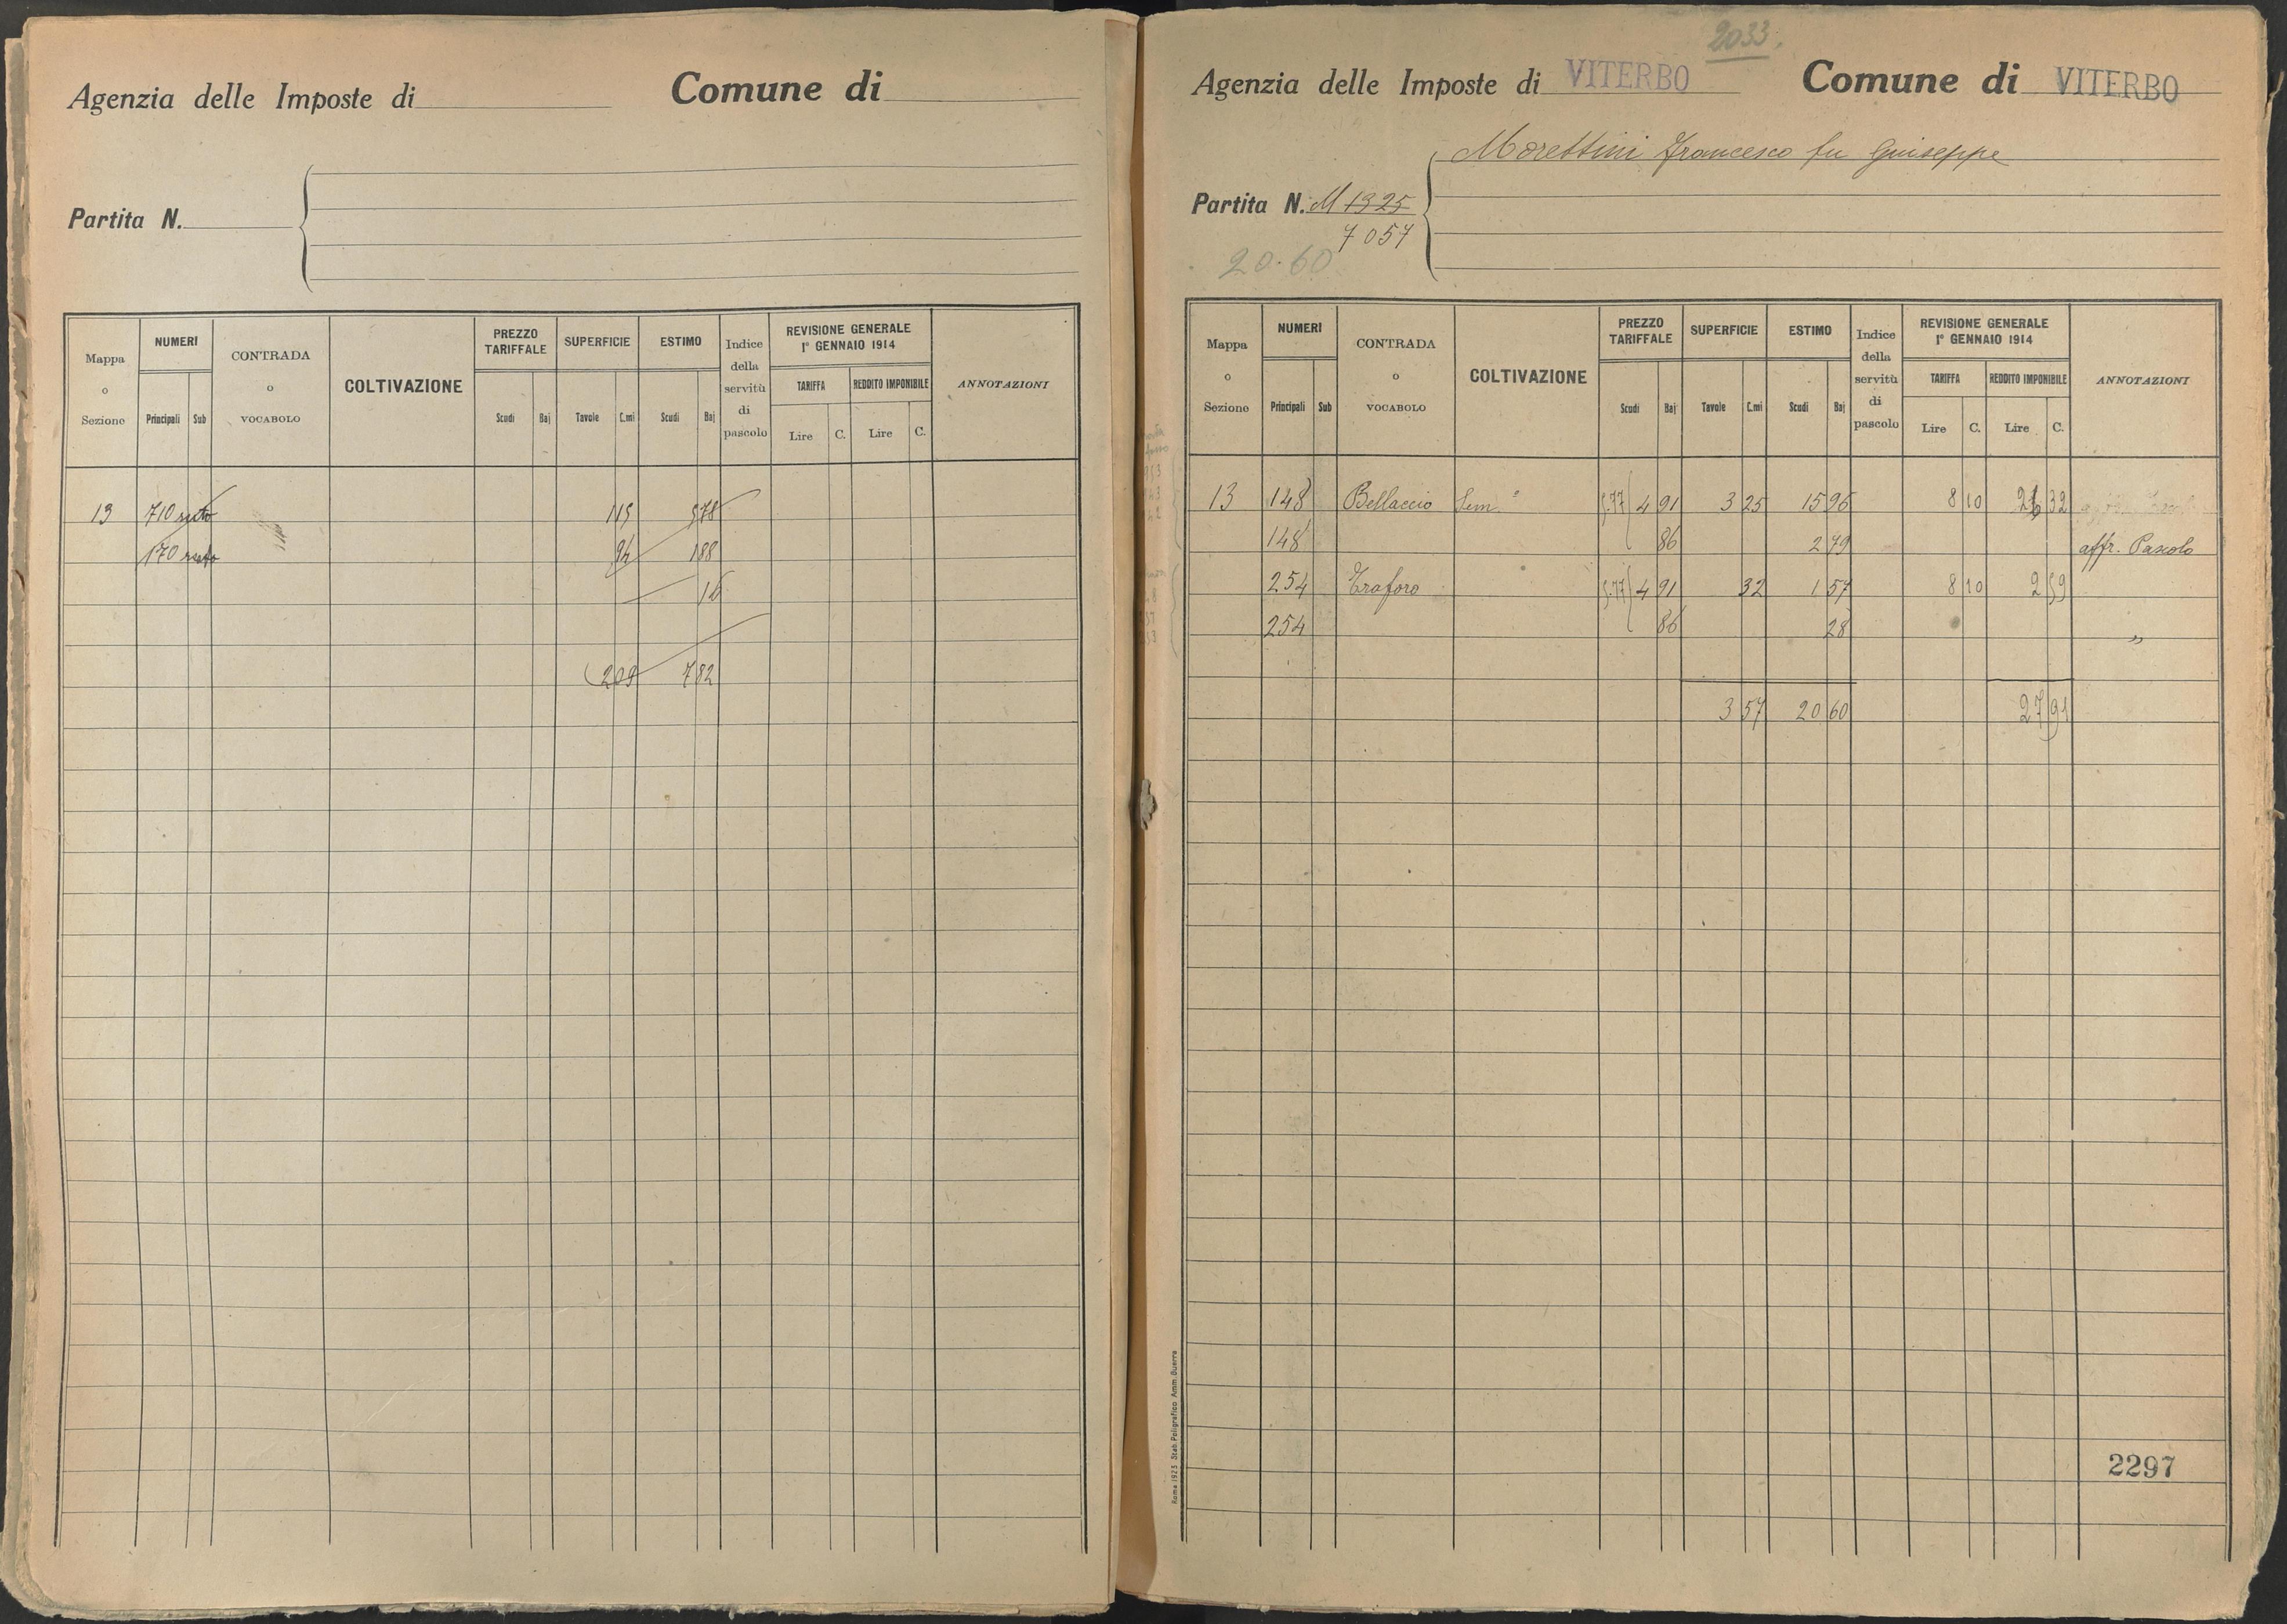 Agenzia delle Imposte di Comune di
Partita N.
Mappa o Sezione NUMERI Principali Sub CONTRADA o VOCABOLO COLTIVAZIONE PREZZO TARIFFALE Scudi Baj SUPERFICIE Tavole C.mi ESTIMO Scudi Baj Indice della servitù di pascolo REVISIONE GENERALE 1° GENNAIO 1914 TARIFFA Lire C. REDDITO IMPONIBILE Lire C. ANNOTAZIONI
13 710 119 578
170 94 188
16
209 782
2033
Agenzia delle Imposte di VITERBO Comune di VITERBO
Morettini Francesco fu Giuseppe
Partita N. M 1325
7057
20.60
Mappa o Sezione NUMERI Principali Sub CONTRADA o VOCABOLO COLTIVAZIONE PREZZO TARIFFALE Scudi Baj SUPERFICIE Tavole C.mi ESTIMO Scudi Baj Indice della servitù di pascolo REVISIONE GENERALE 1° GENNAIO 1914 TARIFFA Lire C. REDDITO IMPONIBILE Lire C. ANNOTAZIONI
13 148 Bellaccio Sem.º 5.77 4 91 3 25 15 96 8 10 26 32
148 86 2 79 affr. Pascolo
254 Traforo 5.77 4 91 32 1 57 8 10 2 59
254 86 28 „
3 57 20 60 27 91
2297
Roma 1923 Stab. Poligrafico Amm. Guerra